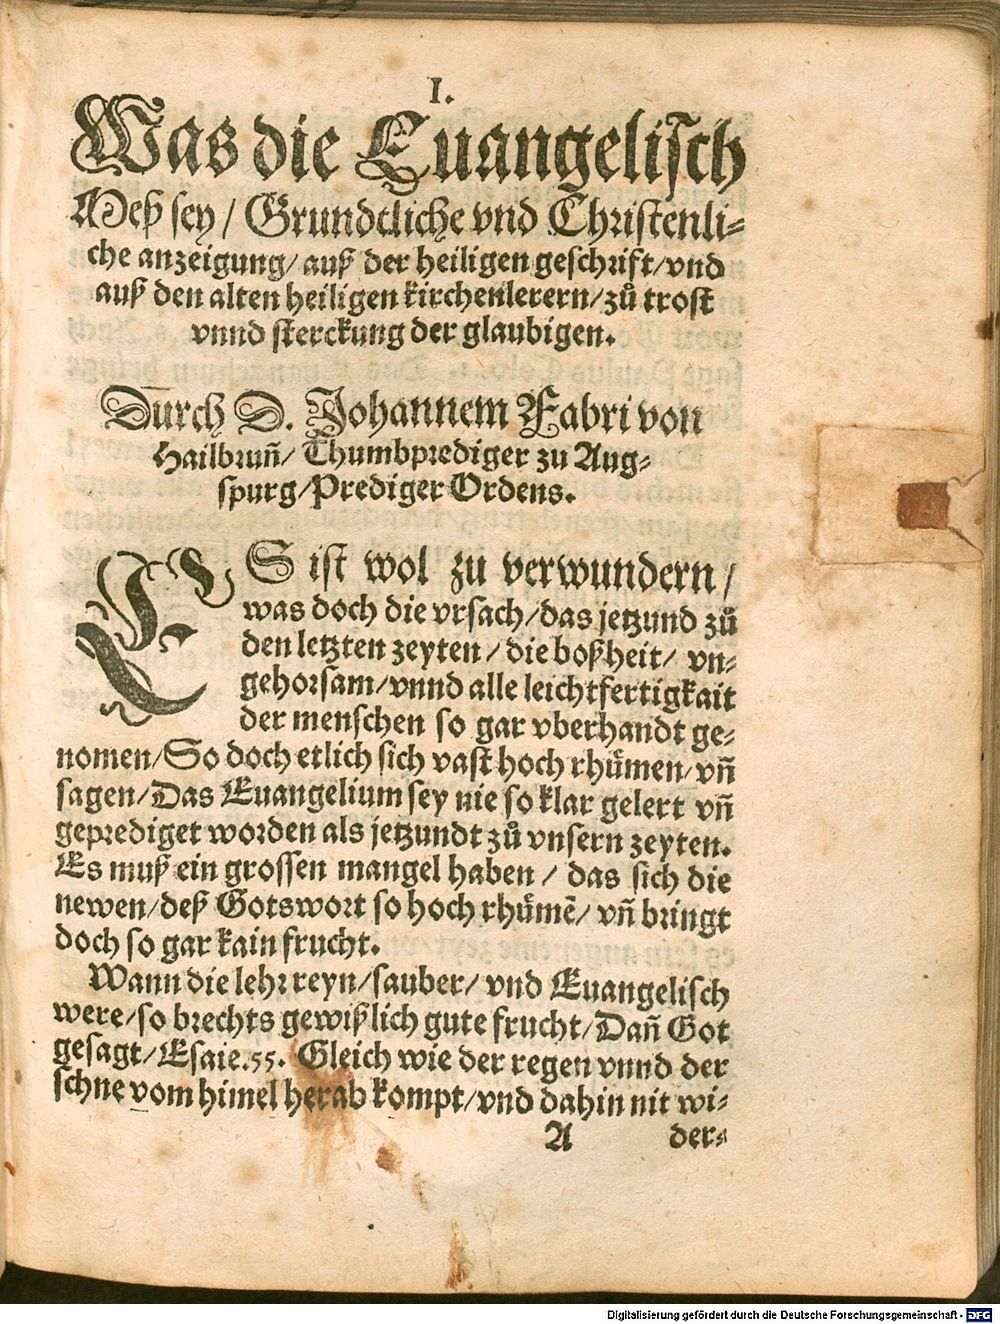 I.
Was die Euangelisch
Meß sey / Grundtliche vnd Christenli⸗
che anzeigung/ auß der heiligen geschrift/vnd
auß den alten heiligen kirchenlerern/zuͦ trost
vnnd sterckung der glaubigen.
Durch D. Johannem Fabri von
Hailbrun̄/ Thumbprediger zu Aug⸗
spurg/Prediger Ordens.
ES ist wol zu verwundern /
was doch die vrsach/das jetzund zuͦ
den letzten zeyten / die boßheit/ vn⸗
gehorsam/vnnd alle leichtfertigkait
der menschen so gar vberhandt ge⸗
nomen/So doch etlich sich vast hoch rhuͤmen/vn̄
sagen/Das Euangelium sey nie so klar gelert vn̄
geprediget worden als jetzundt zuͦ vnsern zeyten.
Es muß ein grossen mangel haben / das sich die
newen/deß Gotswort so hoch rhuͤmē/ vn̄ bringt
doch so gar kain frucht.
Wann die lehr reyn/sauber/ vnd Euangelisch
were/so brechts gewißlich gute frucht/Dan̄ Got
gesagt/Esaie.55. Gleich wie der regen vnnd der
schne vom himel herab kompt/vnd dahin nit wi⸗
A der⸗
Digitalisierung gefördert durch die Deutsche Forschungsgemeinschaft - DFG